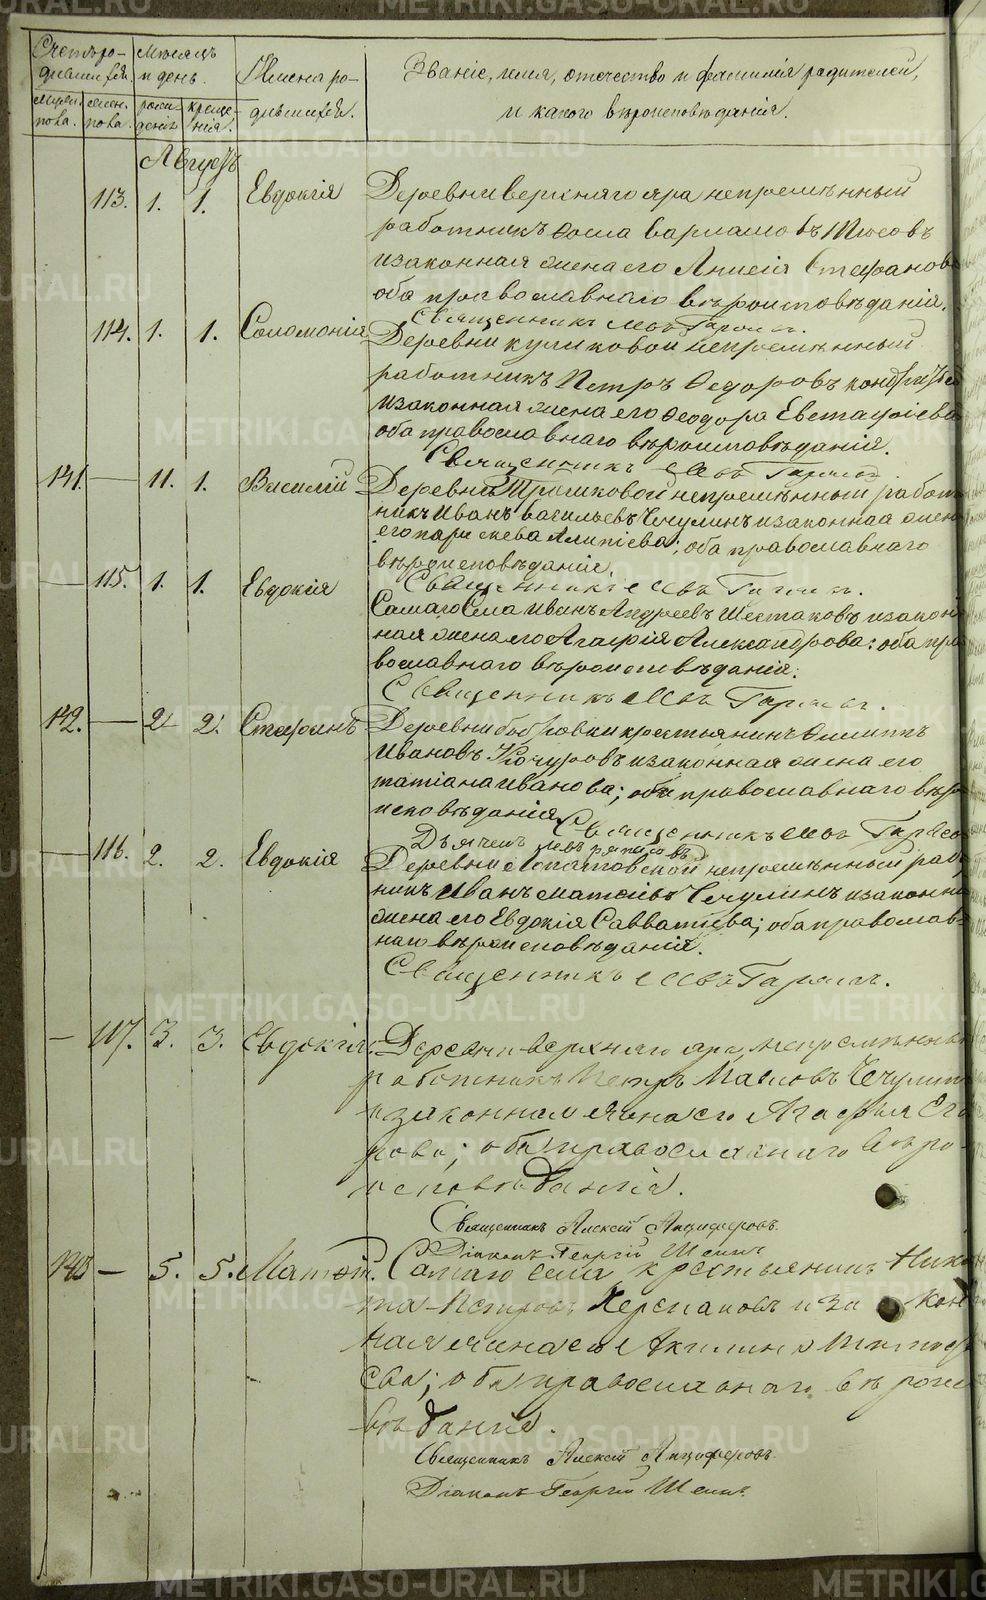 Счетъ ро-
дившихся
Мѣсяцъ
и день.
Имена ро-
дившихся.
Званіе, имя, отчество и фамилія родителей,
и какого вѣроисповѣданія.
мужеск.
пола.
женск.
пола.
рож-
денія
креще-
нія.
Августъ
113. 1. 1. Евдокія Деревни верхняго яра непремѣнный
работникъ Ѳома Варламовъ
и законная жена его Анисія Стефанова
оба православнаго вѣроисповѣданія.
Священникъ Левъ Гарин
114. 1. 1. Соломонія Деревни куликовой непремѣнный
работникъ Петръ Ѳедоровъ
и законная жена его Ѳеодора Евстафіева
оба православнаго вѣроисповѣданія.
Священникъ Левъ
141. — 11. 1. Василій Деревни непремѣнный работ
никъ Иванъ Васильевъ Чечулинъ и законная жена
его Параскева Алипіева; оба православнаго
вѣроисповѣданія.
Священникъ Левъ
— 115. 1. 1. Евдокія
Самаго Села Иванъ Андреевъ Шестаковъ и закон
ная жена его Агафія Александрова: оба пра
вославнаго вѣроисповѣданія.
Священникъ Левъ
142. — 2. 2. Стефанъ Деревни бобровки крестьянинъ Филиппъ
Ивановъ Кочуровъ и законная жена его
татіана иванова; оба православнаго вѣро
исповѣданія Священникъ Левъ
Дьячекъ
— 116. 2. 2. Евдокія Деревни непремѣнный рабо
никъ Иванъ Чечулинъ и законна
жена его Евдокія Савватіева; оба православ
наго вѣроисповѣданія.
Священникъ Левъ
— 117. 3. 3. Евдокія Деревни верхняго яра, непремѣнный
работникъ Петръ Чечулин
и законная жена его Агафья Его
рова; оба православнаго вѣро-
исповѣданія.
Священникъ Алексій Анциферовъ.
Діаконъ Георгій
143 — 5. 5. Матвѣй. Самаго села крестьянинъ Ники
та Петровъ и закон
ная жена его Акилина
ева; оба православнаго вѣроис
вѣданія.
Священникъ Алексій Анциферовъ.
Діаконъ Георгій
METRIKI.GASO-URAL.RU